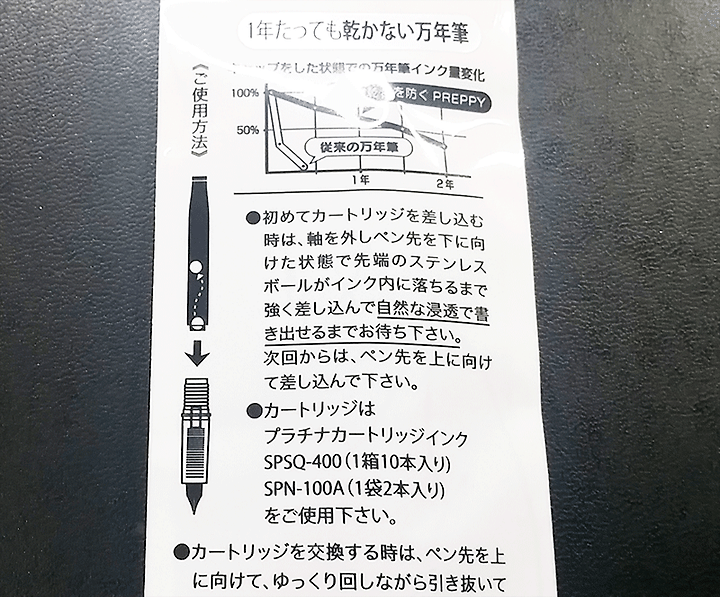 1年たっても乾かない万年筆
《ご使用方法》
をした状態での万年筆インク量変化
100%
を防ぐ PREPPY
50%
従来の万年筆
1年
2年
●初めてカートリッジを差し込む
時は、軸を外しペン先を下に向
けた状態で先端のステンレス
ボールがインク内に落ちるまで
強く差し込んで自然な浸透で書
き出せるまでお待ち下さい。
次回からは、ペン先を上に向け
て差し込んで下さい。
●カートリッジは
プラチナカートリッジインク
SPSQ-400(1箱10本入り)
SPN-100A(1袋2本入り)
をご使用下さい。
●カートリッジを交換する時は、ペン先を上
に向けて、ゆっくり回しながら引き抜いて